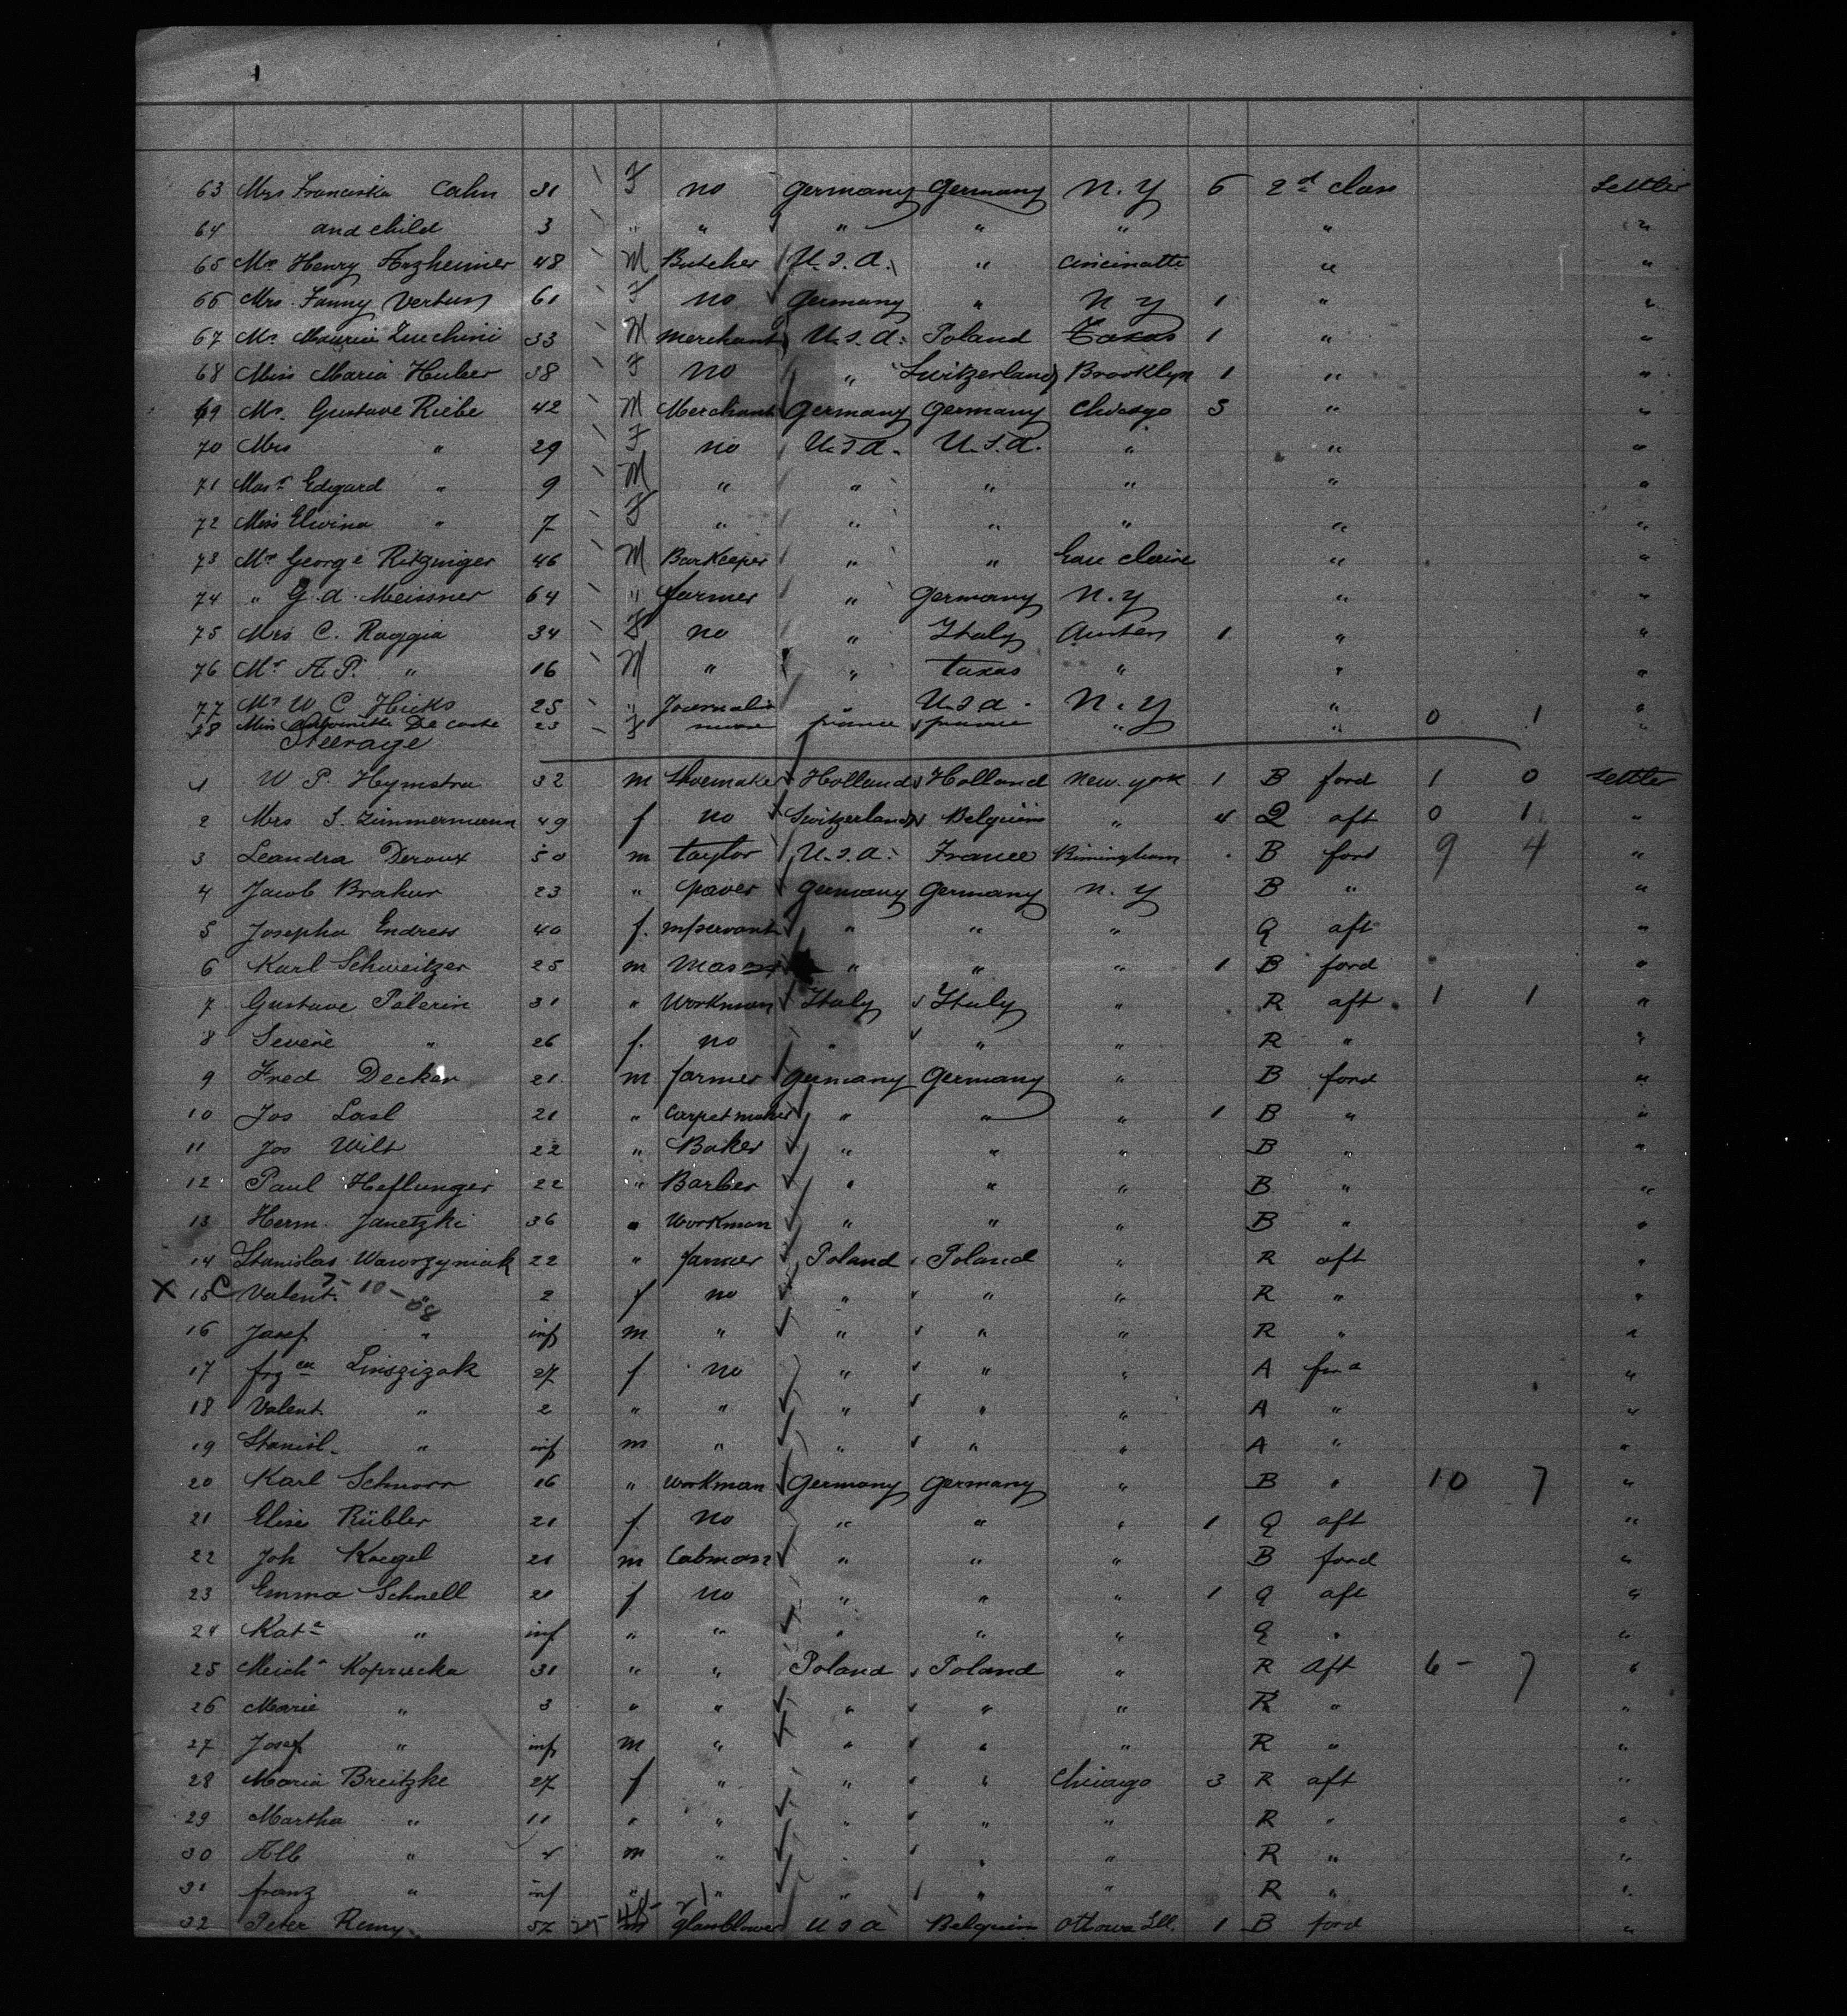 63 Mrs Franciska Cahn 31 F no Germany Germany N. Y 6 2d class Settler
64 and child 3 " " " " " " "
65 Mr Henry Arzheimer 48 M Butcher U. S. A. " Cincinatti " "
66 Mrs. Fanny Vertun 61 F no Germany " N Y 1 " "
67 Mr Zucchini 33 M Merchant U. S. A. Poland Taxas 1 " "
68 Miss Maria Huber 38 F no " Switzerland Brooklyn 1 " "
69 Mr. Gustave Riebe 42 M Merchant Germany Germany Chicago 3 " "
70 Mrs " 29 F no U. S. A. U. S. A. " " "
71 Mastr Edgard " 9 M " " " " " "
72 Miss Elvina " 7 F " " " " " "
73 Mr George Ritzinger 46 M Barkeeper " " Eau Claire " "
74 " G. A. Meissner 64 " farmer " Germany N. Y " "
75 Mrs C. Raggia 34 F no " Italy Austen 1 " "
76 Mr A. P. " 16 M " " taxas " " "
77 Mr W C Hicks 25 " Journalist " U. S. A. N. Y " "
78 Miss De 23 F france france " " 0 1 "
Steerage
1 W P. Hymstra 32 m Shoemaker Holland Holland New. york 1 B ford 1 0 Settler
2 Mrs S. Zimmermann 49 f no Switzerland Belguim " 4 Q aft 0 1 "
3 Leandra Deroux 50 m taylor U. S. A. France Birmingham B ford 9 4 "
4 Jacob Brakur 23 " paver Germany Germany N. Y B " "
5 Josepha Endress 40 f. mfservant " " " Q aft "
6 Karl Schweitzer 25 m Mason " " " 1 B ford "
7 Gustave Palerin 31 " Workman Italy Italy " R aft 1 1 "
8 Severe " 26 f. no " " " R " "
9 Fred Decker 21 m farmer Germany Germany " B ford "
10 Jos Lasl 21 " Carpetmaker " " " 1 B " "
11 Jos Wilt 22 " Baker " " " B " "
12 Paul Heflunger 22 " Barber " " " B " "
13 Herm. Janetzki 36 " Workman " " " B " "
14 Stanislas Wawrzyniak 22 " farmer Poland Poland " R aft "
X 15 C Valent. 7-10-88 2 f no " " " R " "
16 Josef " inf m " " " " R " "
17 27 f no " " " A ford "
18 Valent " 2 " " " " " A " "
19 Stanisl. " inf m " " " " A " "
20 Karl Schnorr 16 " workman Germany Germany " B " 10 7 "
21 Elise Rübler 21 f no " " " 1 Q aft "
22 Joh Koegel 21 m Cabman " " " B ford "
23 Emma Schnell 21 f no " " " 1 Q aft "
24 Kate " inf " " " " " Q " "
25 31 " " Poland Poland " R aft 6 - 7 "
26 Marie " 3 " " " " " R " "
27 Josef " inf m " " " " R " "
28 Maria Breitzke 27 f " " " Chicago 3 R aft "
29 Martha " 11 " " " " " R " "
30 Alb " 4 m " " " " R " "
31 franz " inf " " " " " R " "
32 Peter Remy 57 m glassblower U S A Belguim Ottowa Ill. 1 B ford "